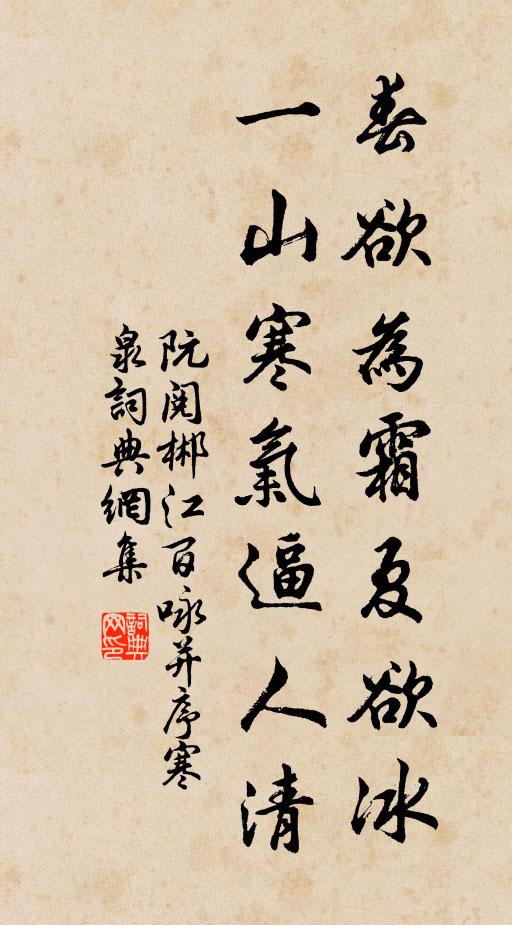 春欲為霜夏欲冰
一山寒氣逼人清
阮閱郴江百咏并序寒
泉詞典網集
詞典网印